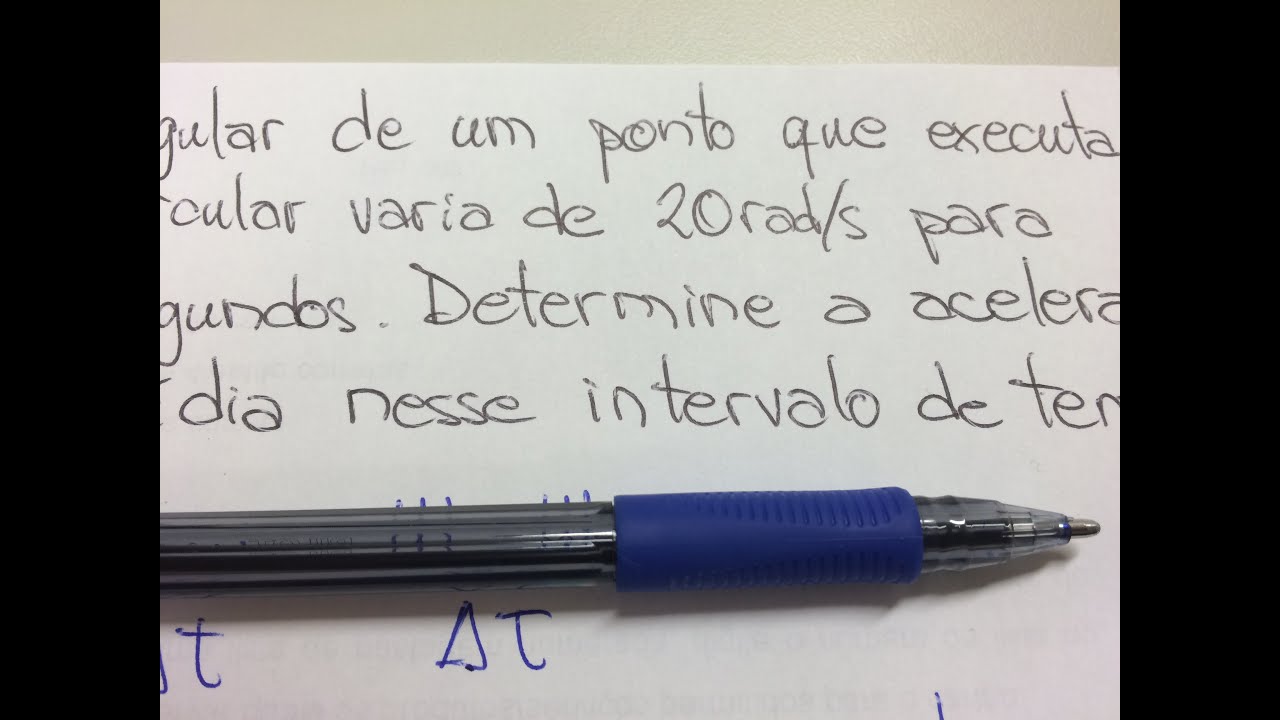 gular de um ponto que executa
rcular varia de 20rad/s para
gundos. Determine a acelera
dia nesse intervalo de tem
Δt Δt